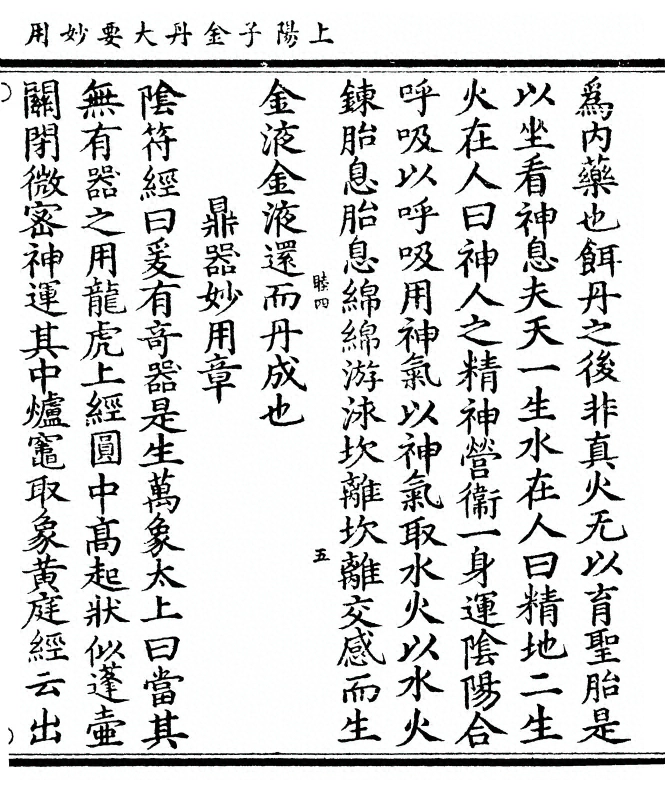 上陽子金丹大要妙用
爲内藥也餌丹之後非真火无以育聖胎是
以坐看神息夫天一生水在人曰精地二生
火在人曰神人之精神營衞一身運陰陽合
呼吸以呼吸用神氣以神氣取水火以水火
鍊胎息胎息綿綿游泳坎離坎離交感而生
睦四
五
金液金液還而丹成也
鼎器妙用章
陰符經曰爰有竒器是生萬象太上曰當其
無有器之用龍虎上經圓中髙起狀似蓬壷
關閉微密神運其中爐竈取象黄庭經云出